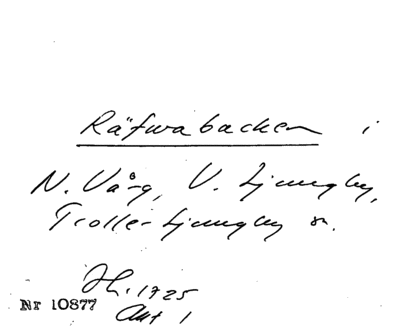 Räfwabacken i
N. Vång, V. Ljungby,
Trolle-Ljungby sn.
1925
Akt 1
Nr 10877